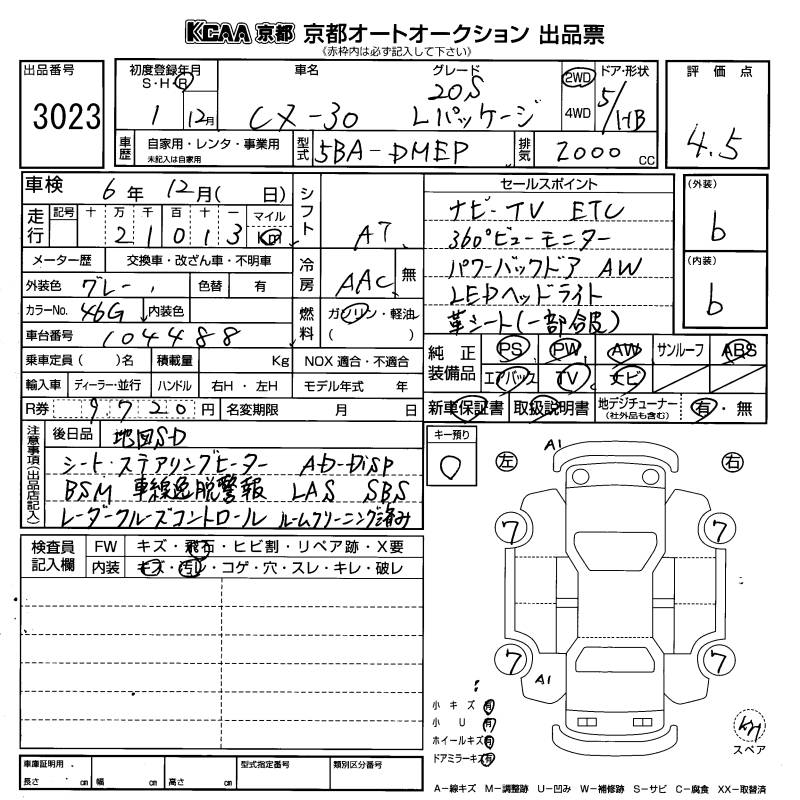 KCAA 京都 京都オートオークション 出品票
(赤枠内は必ず記入して下さい)
出品番号
3023
初度登録年月
S・H・R
1 12月
車名
CX-30
グレード
20S
Lパッケージ
2WD
4WD
ドア・形状
5/HB
評価点
4.5
車歴
自家用・レンタ・事業用
未記入は自家用
型式
5BA-DMEP
排気
2000 CC
車検 6年 12月( 日)
走行
記号 十 万 千 百 十 一 マイル
2 1 0 1 3 Km
シフト
AT
メーター歴 交換車・改ざん車・不明車
外装色 グレー 色替 有
冷房
AAC 無
カラーNo. 46G 内装色
車台番号 104488
燃料
ガソリン・軽油
( )
乗車定員( )名 積載量 Kg NOX 適合・不適合
輸入車 ディーラー・並行 ハンドル 右H・左H モデル年式 年
R券 9,720円 名変期限 月 日
セールスポイント
ナビ-TV ETC
360°ビューモニター
パワーバックドア AW
LEDヘッドライト
革シート(一部合皮)
(外装)
b
(内装)
b
純正装備品
PS PW AW サンルーフ ABS
エアバック TV ナビ
新車保証書 取扱説明書 地デジチューナー
(社外品も含む)
有・無
注意事項(出品店記入)
後日品 地図SD
シート・ステアリングヒーター AD-Disp
BSM 車線逸脱警報 LAS SBS
レーダークルーズコントロール ルームクリーニング済み
キー預り
0
左
右
A1
7
7
7
7
A1
検査員記入欄
FW キズ・飛石・ヒビ割・リペア跡・X要
内装 キズ・汚レ・コゲ・穴・スレ・キレ・破レ
小キズ 有
小U 有
ホイールキズ 有
ドアミラーキズ 有
スペア
車庫証明用
長さ cm 幅 cm 高さ cm
型式指定番号
類別区分番号
A-線キズ M-調整跡 U-凹み W-補修跡 S-サビ C-腐食 XX-取替済